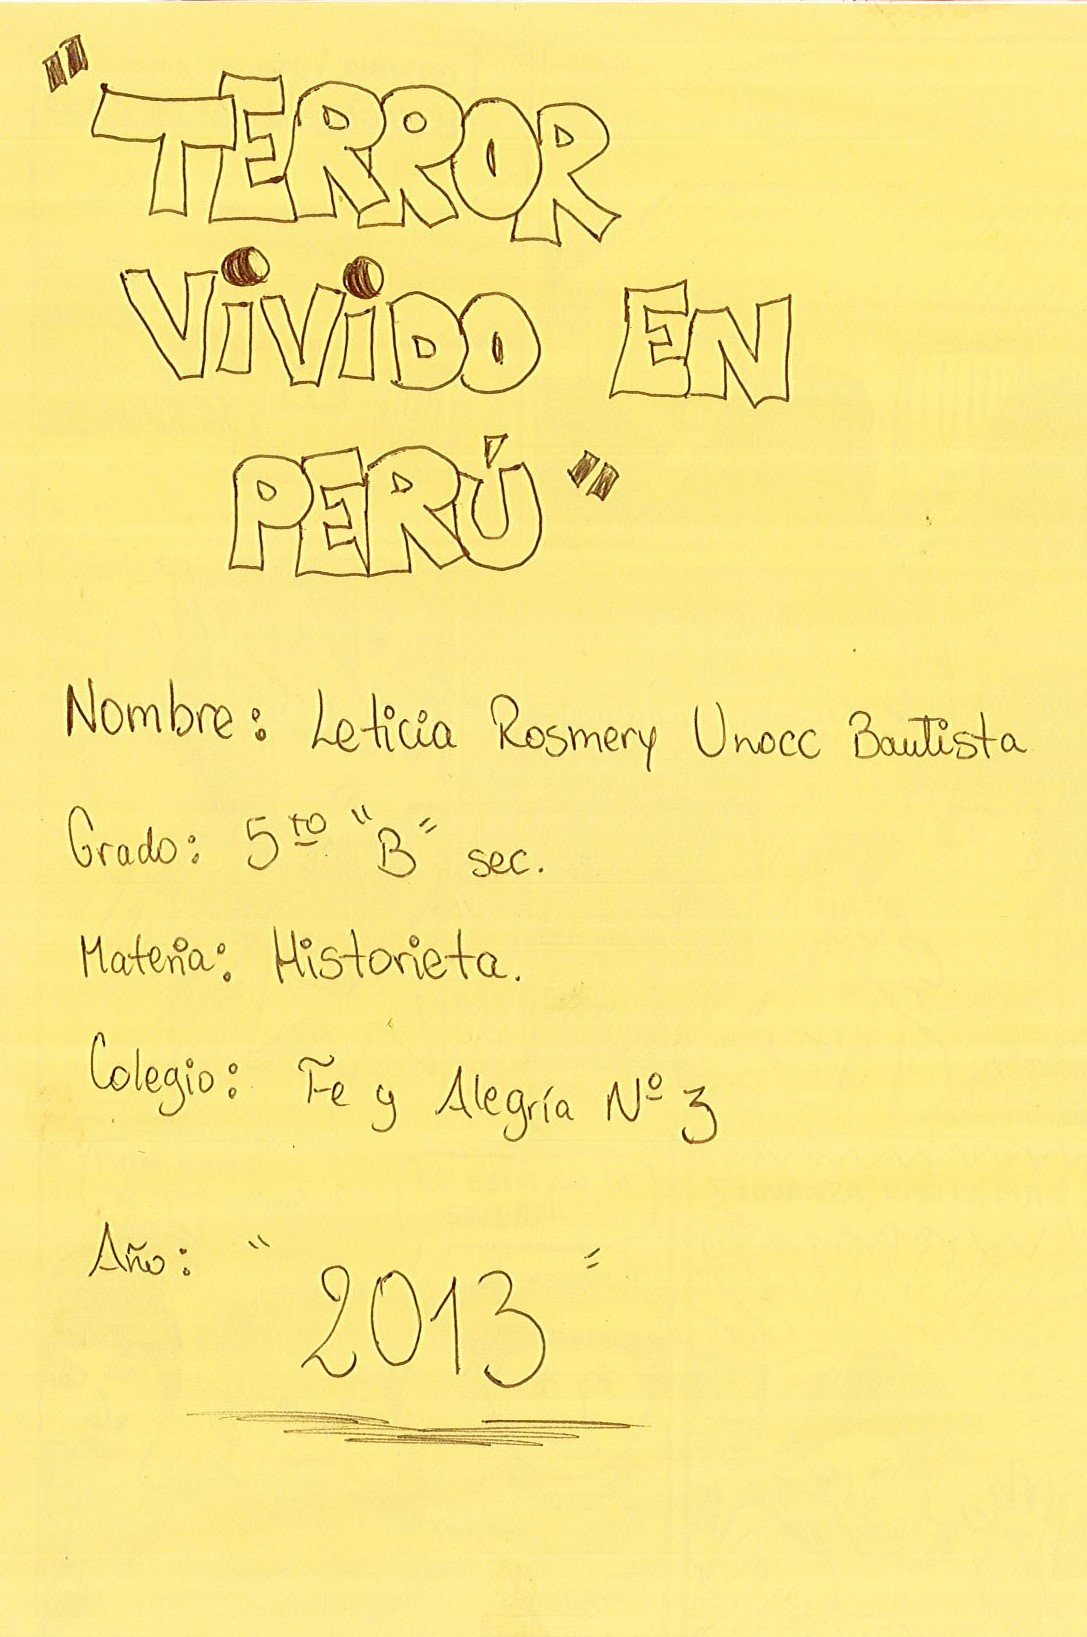 "TERROR
ViViDO EN
PERÚ"
Nombre: Leticia Rosmery Unocc Bautista
Grado: 5to "B" sec.
Materia: Historieta.
Colegio: Fe y Alegría Nº 3
Año: "2013"